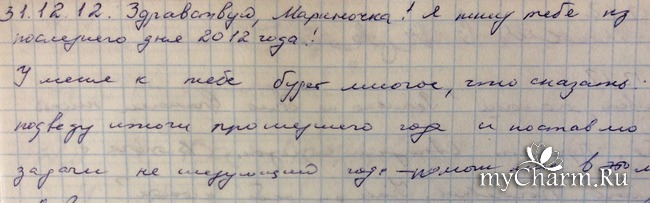 31.12.12. Здравствуй, Мариночка! Я пишу тебе из
последнего дня 2012 года!
У меня к тебе будет многое, что сказать.
подведу итоги прошедшего года и поставлю
задачи на следующий год. помоги в этом
myCharm.Ru